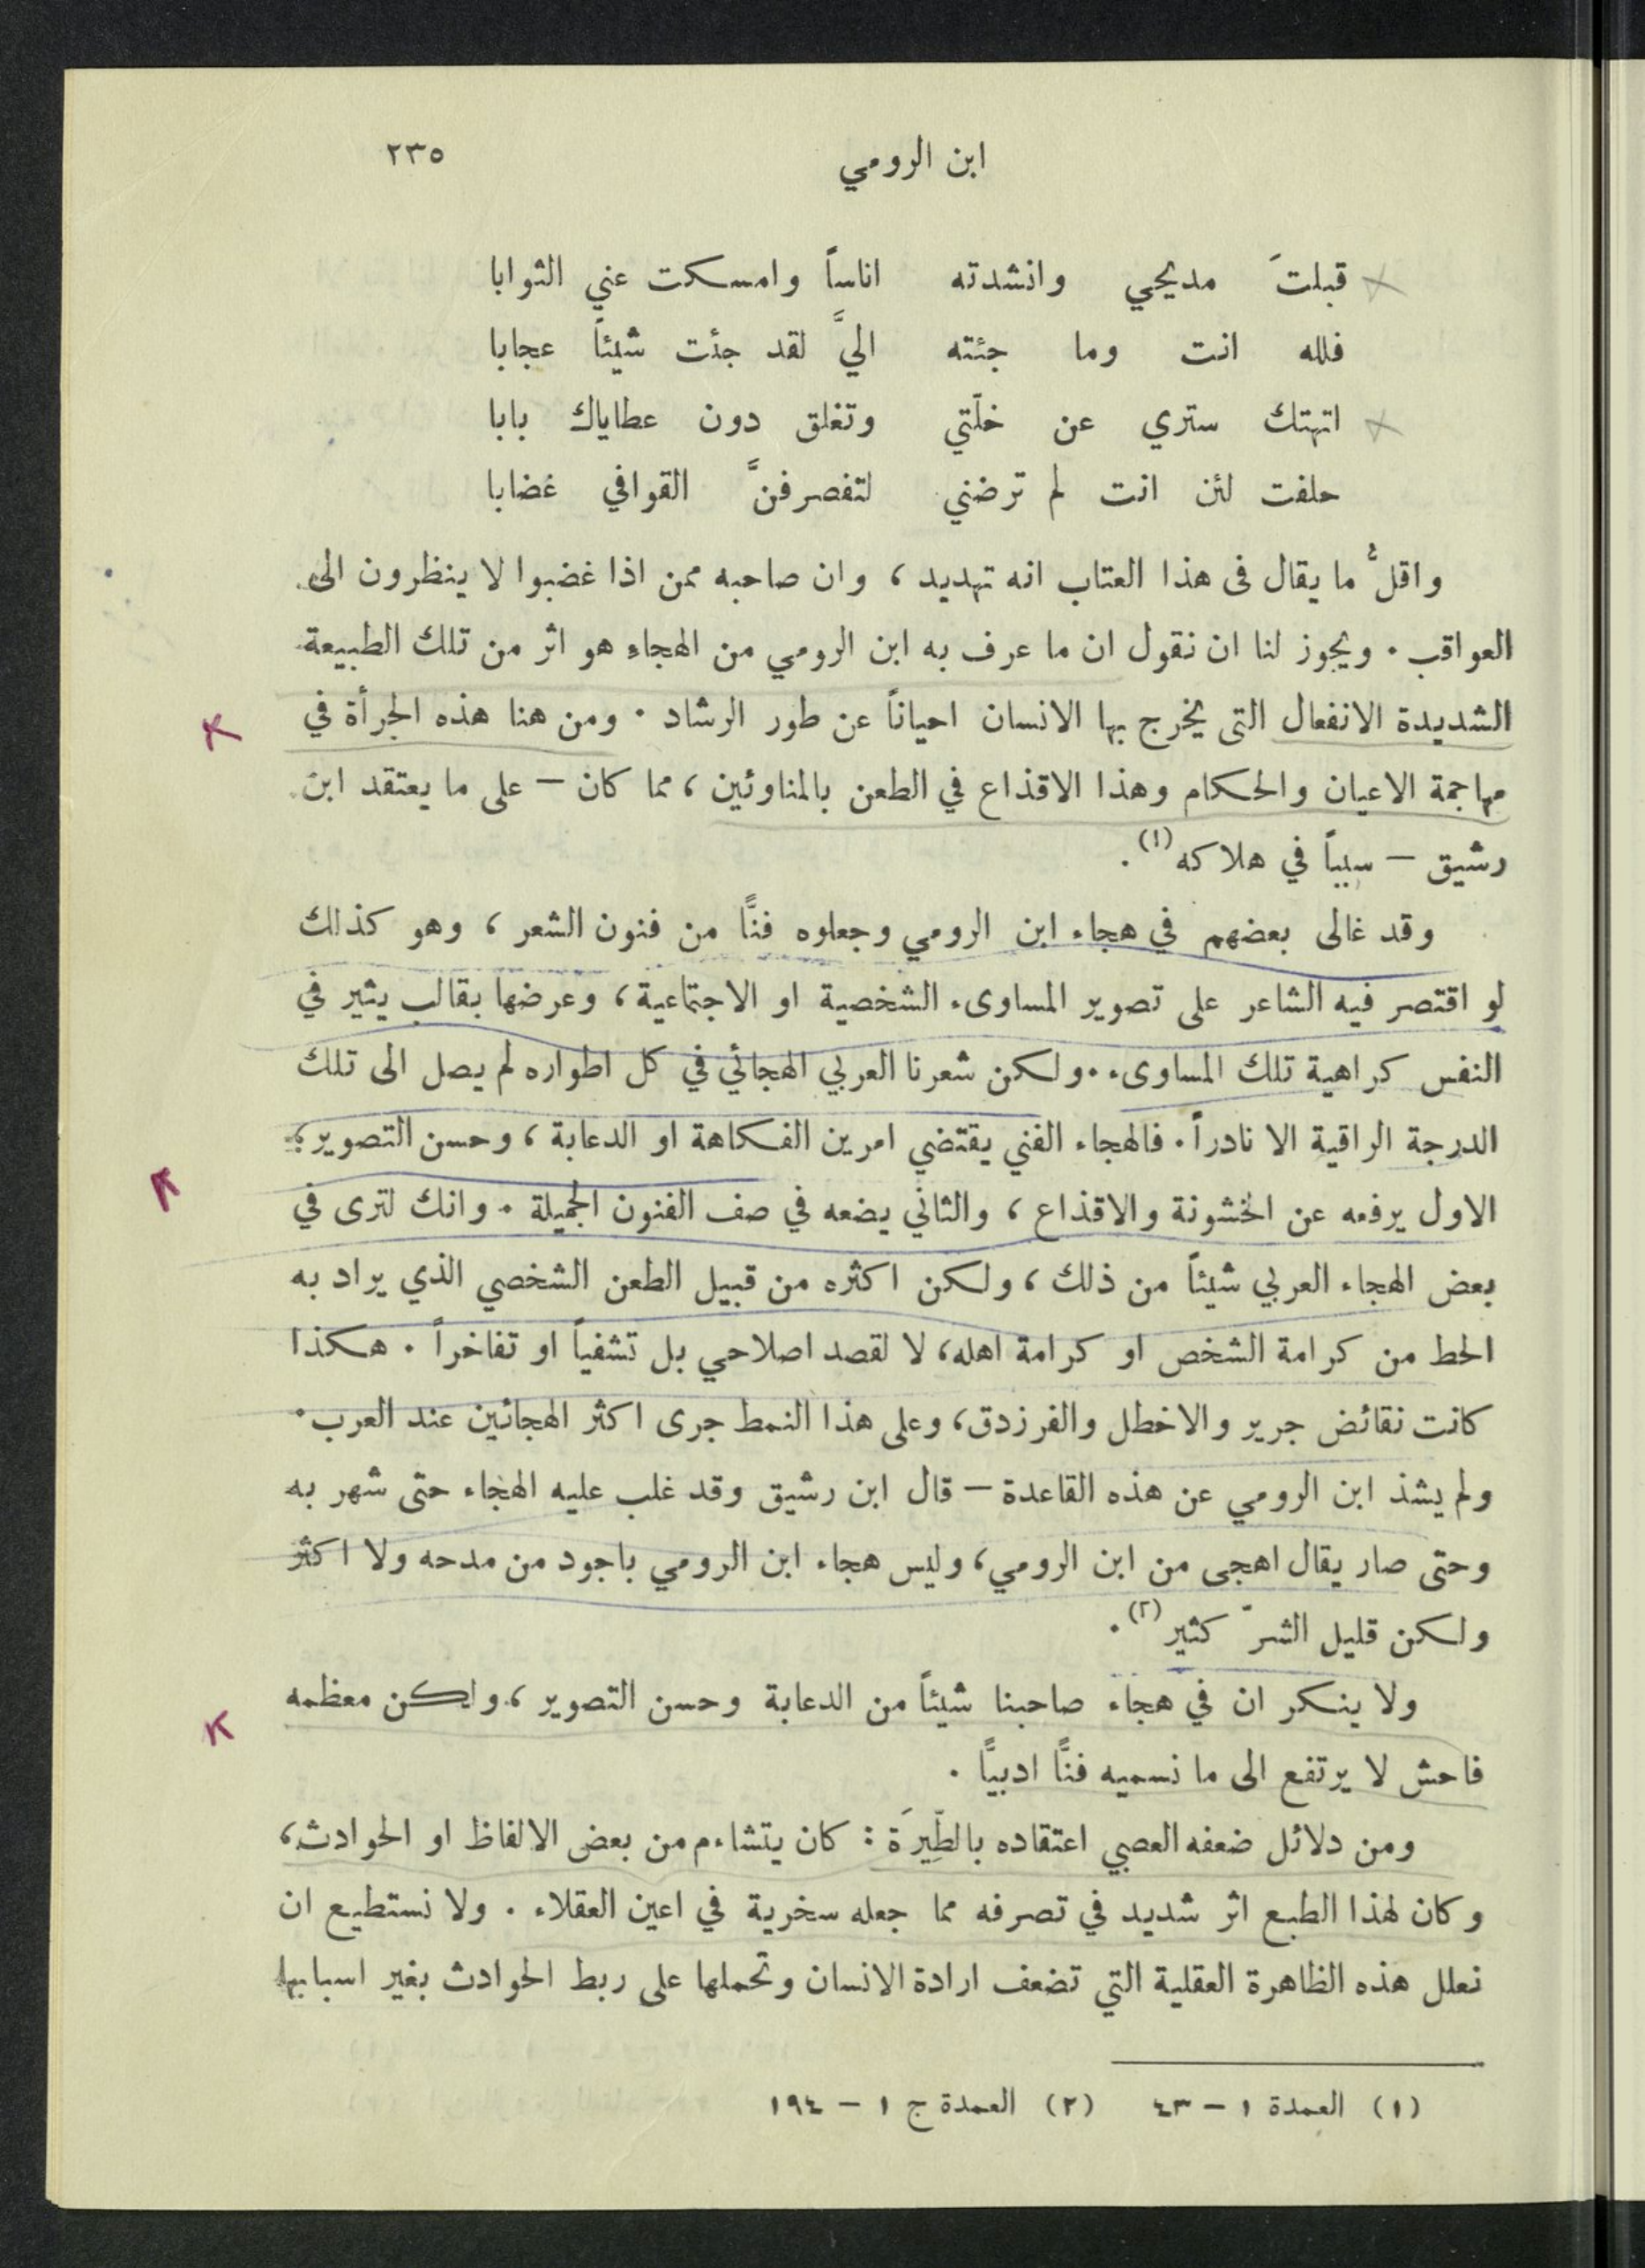 ابن الرومي ٢٣٥
قبلتَ مديحي وانشدته اناساً وامسكت عني الثوابا
فلله انت وما جئته اليَّ لقد جئت شيئاً عجابا
اتهتك ستري عن خلّتي وتغلق دون عطاياك بابا
حلفت لئن انت لم ترضني لتنصرفنَّ القوافي غضابا
واقلُّ ما يقال فى هذا العتاب انه تهديد ، وان صاحبه ممن اذا غضبوا لا ينظرون الى
العواقب . ويجوز لنا ان نقول ان ما عرف به ابن الرومي من الهجاءِ هو اثر من تلك الطبيعة
الشديدة الانفعال التى يخرج بها الانسان احياناً عن طور الرشاد . ومن هنا هذه الجرأة في
مهاجمة الاعيان والحكام وهذا الاقذاع في الطعن بالمناوئين ، مما كان – على ما يعتقد ابن
رشيق – سبباً في هلاكه (١) .
وقد غالى بعضهم في هجاء ابن الرومي وجعلوه فنًّا من فنون الشعر ، وهو كذلك
لو اقتصر فيه الشاعر على تصوير المساوىء الشخصية او الاجتماعية ، وعرضها بقالب يثير في
النفس كراهية تلك المساوىء . ولكن شعرنا العربي الهجائي في كل اطواره لم يصل الى تلك
الدرجة الراقية الا نادراً . فالهجاء الفني يقتضي امرين الفكاهة او الدعابة ، وحسن التصوير ؛
الاول يرفعه عن الخشونة والاقذاع ، والثاني يضعه في صف الفنون الجميلة . وانك لترى في
بعض الهجاء العربي شيئاً من ذلك ، ولكن اكثره من قبيل الطعن الشخصي الذي يراد به
الحط من كرامة الشخص او كرامة اهله ، لا لقصد اصلاحي بل تشفياً او تفاخراً . هكذا
كانت نقائض جرير والاخطل والفرزدق ، وعلى هذا النمط جرى اكثر الهجائين عند العرب .
ولم يشذ ابن الرومي عن هذه القاعدة – قال ابن رشيق وقد غلب عليه الهجاء حتى شهر به
وحتى صار يقال اهجى من ابن الرومي ، وليس هجاء ابن الرومي باجود من مدحه ولا اكثر
ولكن قليل الشرّ كثير (٢) .
ولا ينكر ان في هجاء صاحبنا شيئاً من الدعابة وحسن التصوير ، ولكن معظمه
فاحش لا يرتفع الى ما نسميه فنًّا ادبيًّا .
ومن دلائل ضعفه العصبي اعتقاده بالطِّيرَة : كان يتشاءم من بعض الالفاظ او الحوادث ،
وكان لهذا الطبع اثر شديد في تصرفه مما جعله سخرية في اعين العقلاء . ولا نستطيع ان
نعلل هذه الظاهرة العقلية التي تضعف ارادة الانسان وتحملها على ربط الحوادث بغير اسبابها
(١) العمدة ١ – ٤٣ (٢) العمدة ج ١ – ١٩٤